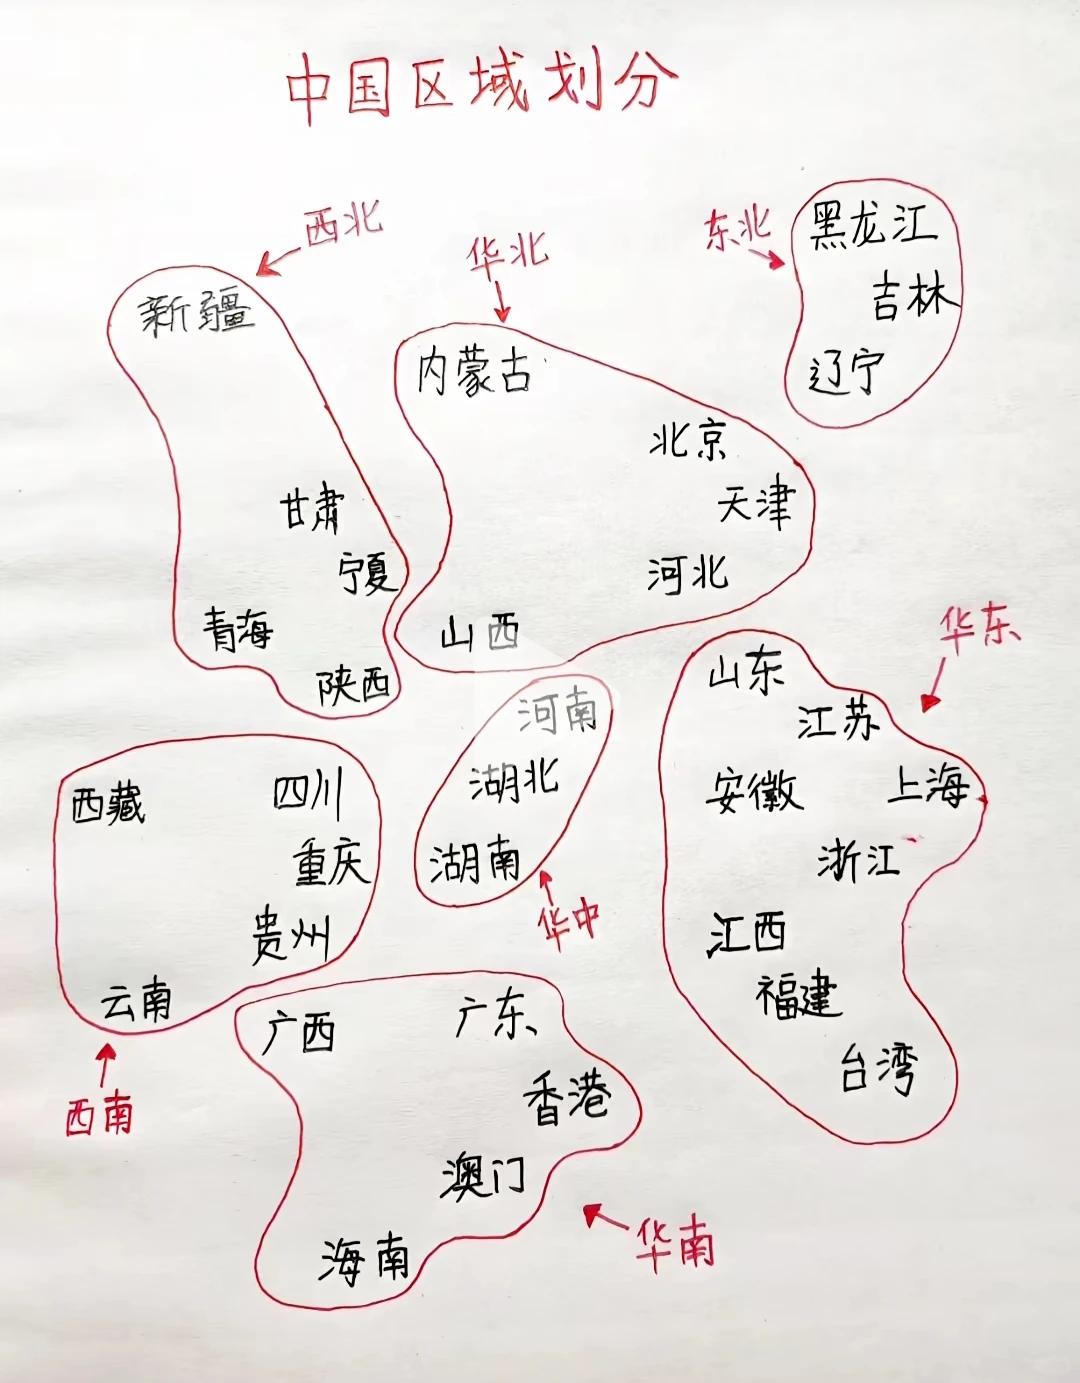 中国区域划分
西北
新疆
甘肃
宁夏
青海
陕西
华北
内蒙古
北京
天津
河北
山西
东北
黑龙江
吉林
辽宁
华东
山东
江苏
安徽
上海
浙江
江西
福建
台湾
华中
河南
湖北
湖南
西南
西藏
四川
重庆
贵州
云南
华南
广西
广东
香港
澳门
海南